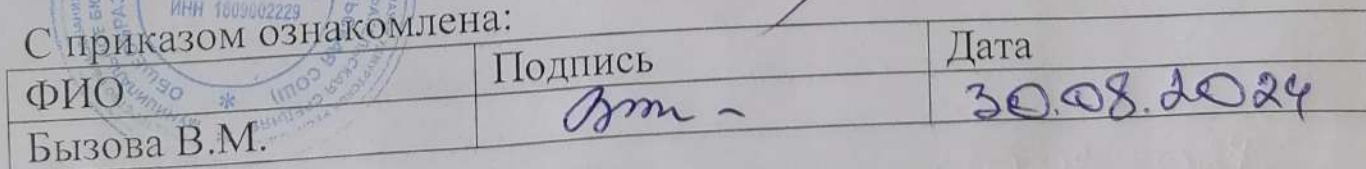 ИНН 1809002229
С приказом ознакомлена:
ФИО Подпись Дата
Бызова В.М. 30.08.2024